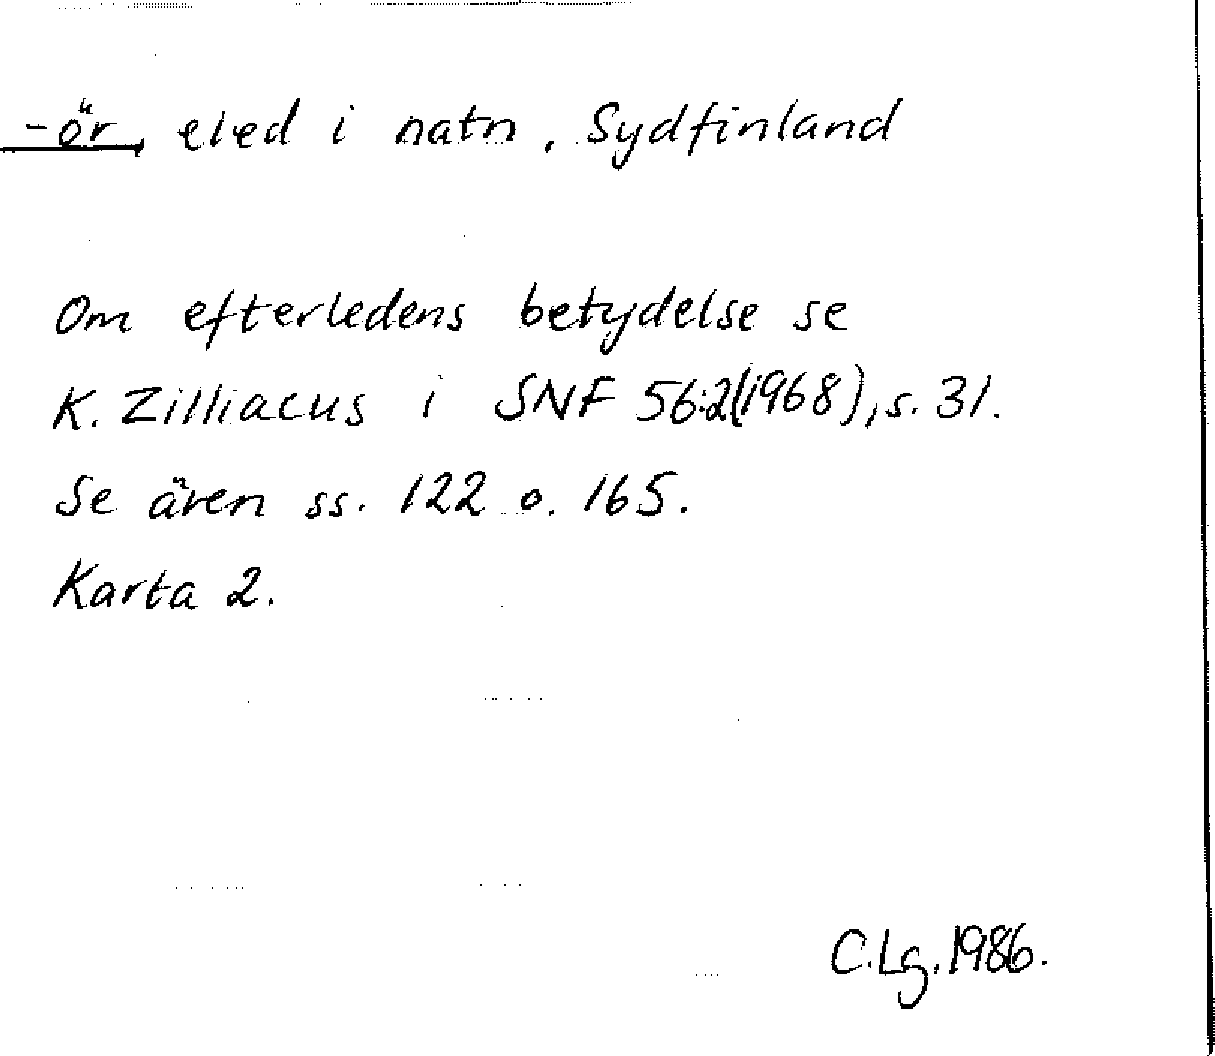 -ör, eled i natn, Sydfinland
Om efterledens betydelse se
K. Zilliacus i SNF 56:2(1968), s. 31.
Se även ss. 122 o. 165.
Karta 2.
C.Lg. 1986.